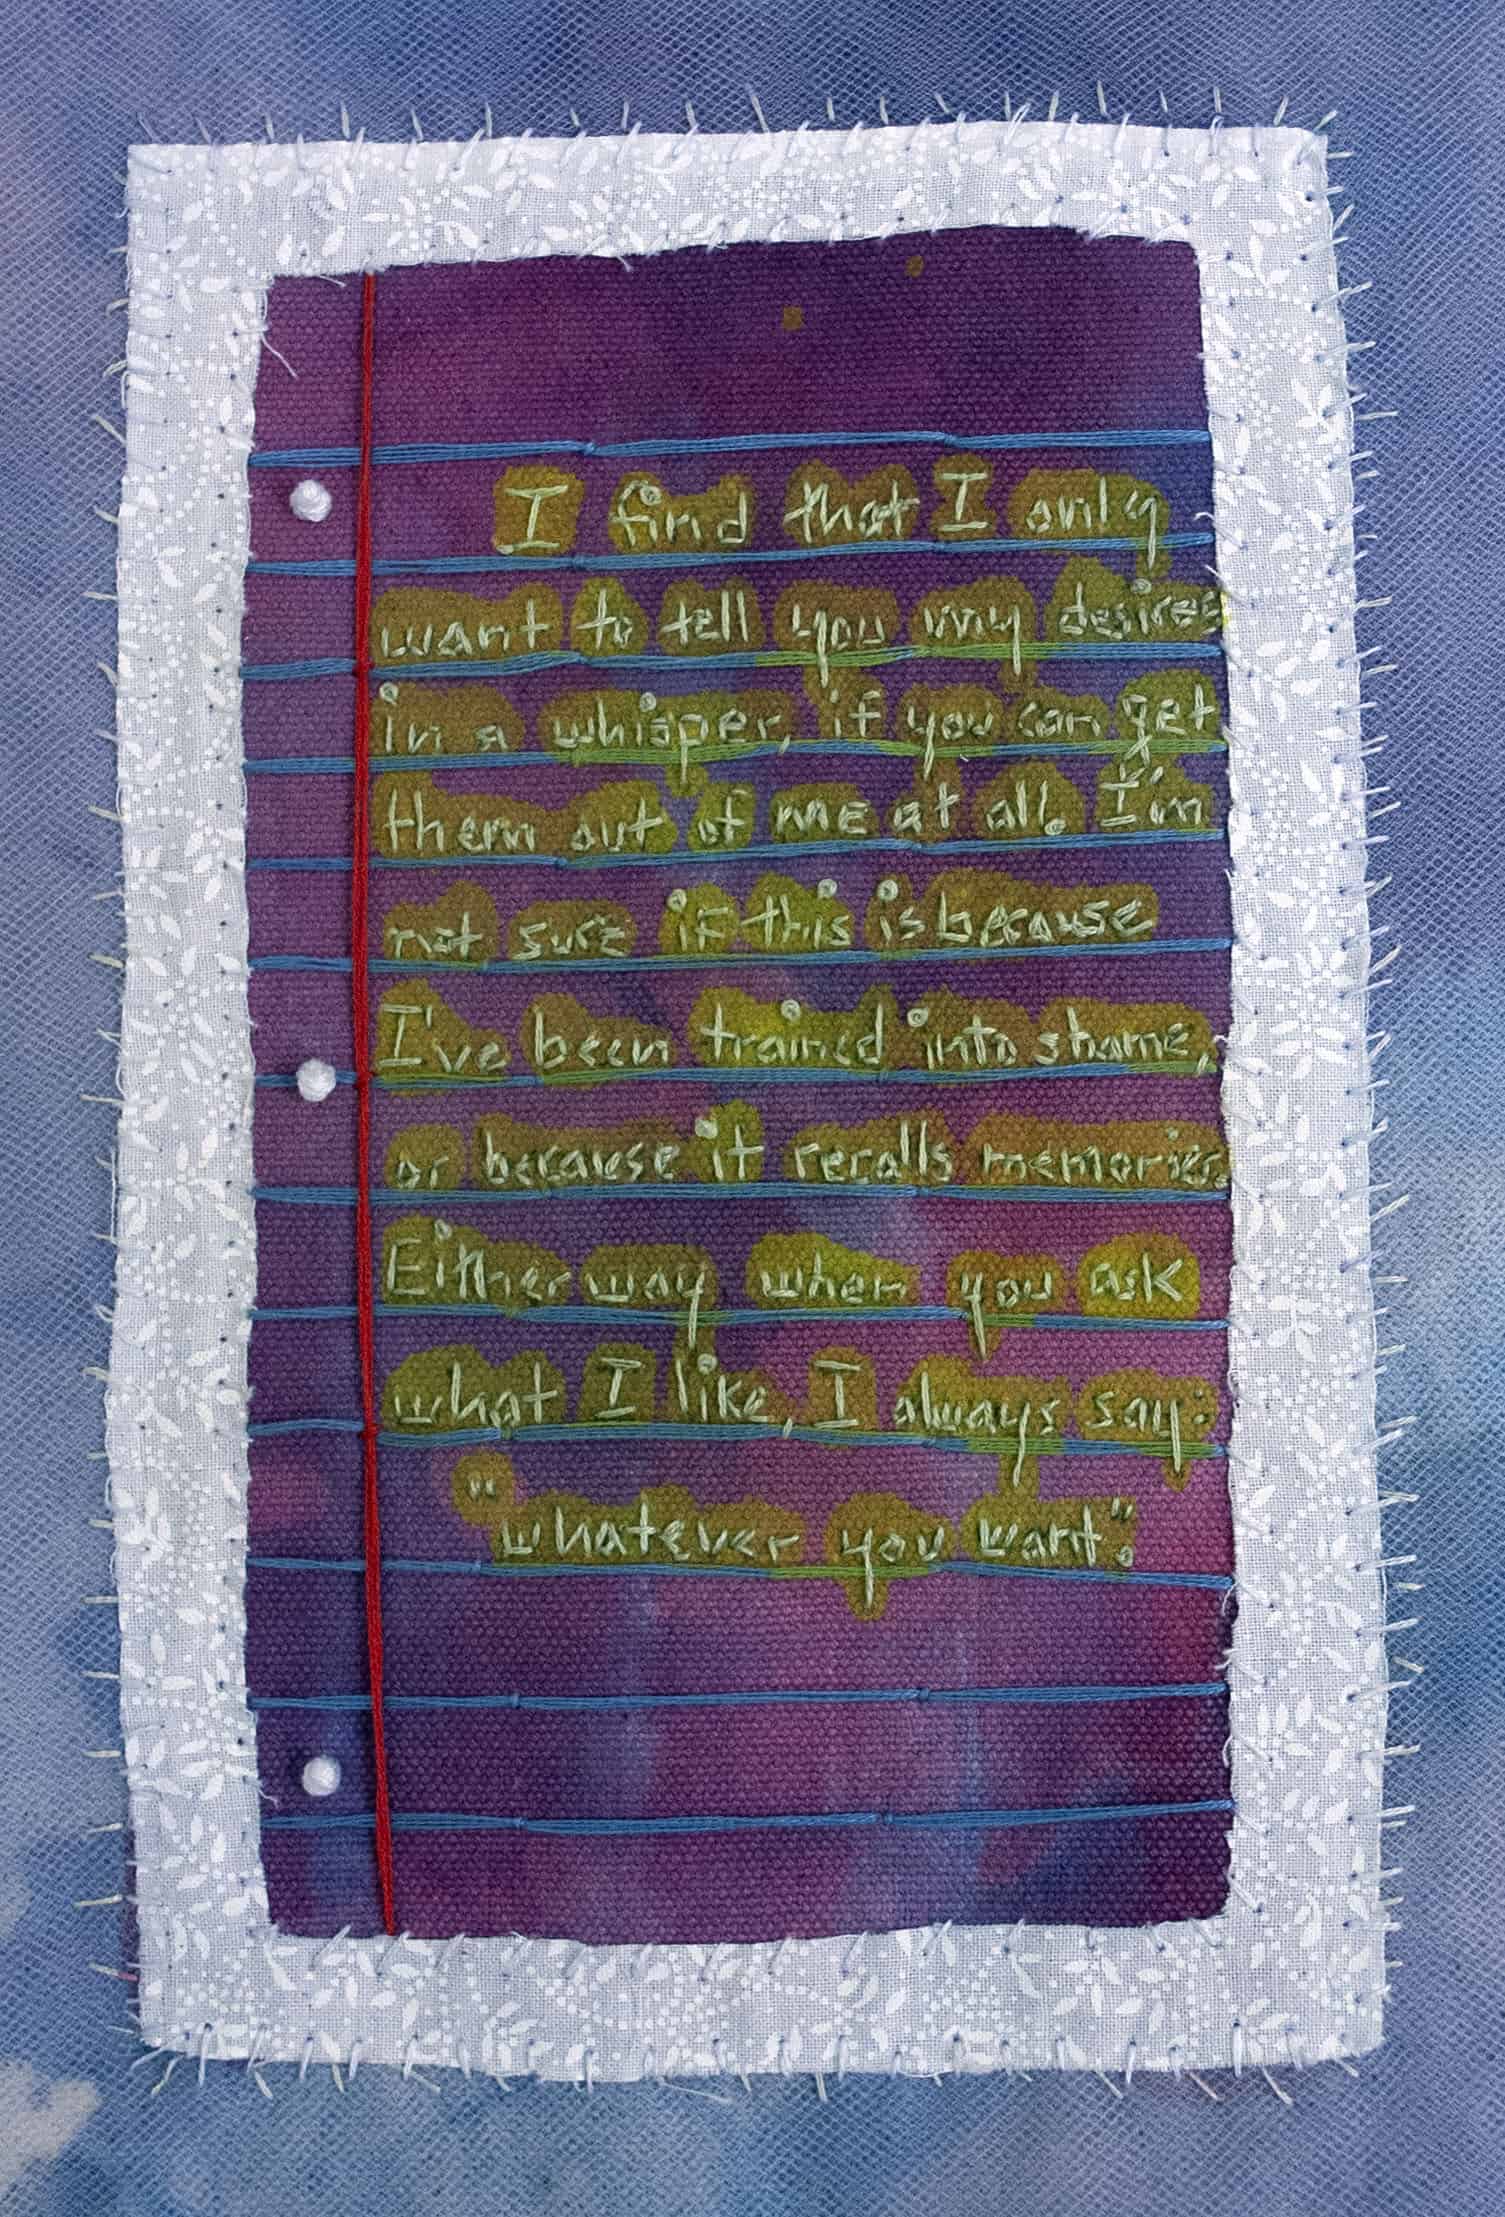 I find that I only
want to tell you my desires
in a whisper, if you can get
them out of me at all. I'm
not sure if this is because
I've been trained into shame,
or because it recalls memories.
Either way when you ask
what I like, I always say:
"whatever you want."